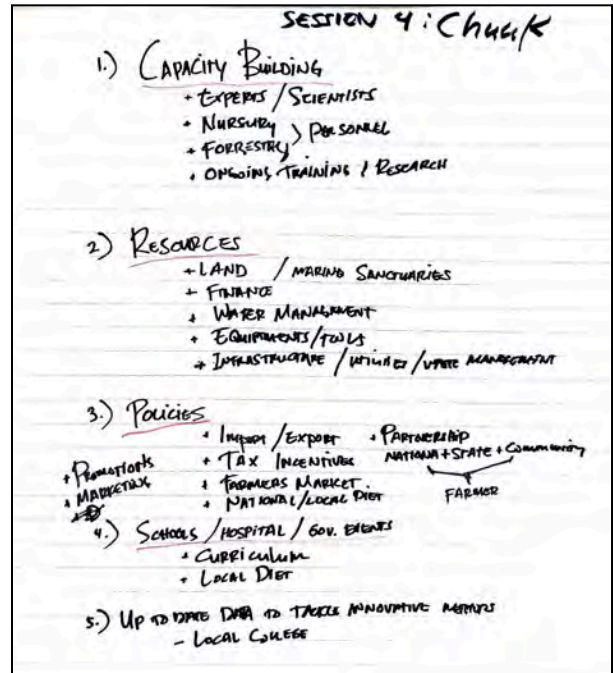 SESSION 4: Chuuk
1.) CAPACITY BUILDING
+ EXPERTS / SCIENTISTS
+ NURSURY
+ FORRESTRY > PERSONNEL
+ ONGOING TRAINING & RESEARCH
2) RESOURCES
+ LAND / MARINE SANCTUARIES
+ FINANCE
+ WATER MANAGEMENT
+ EQUIPTMENTS/TOOLS
+ INFRASTRUCTURE / UTILITIES / WASTE MANAGEMENT
3.) POLICIES
+ IMPORT / EXPORT
+ TAX INCENTIVES
+ FARMERS MARKET
+ NATIONAL/LOCAL DIET
+ PARTNERSHIP
NATIONAL + STATE + Community
FARMER
+ PROMOTIONS
+ MARKETING
4.) SCHOOLS / HOSPITAL / GOV. EVENTS
+ CURRICULUM
+ LOCAL DIET
5.) UP TO DATE DATA TO TACKLE INNOVATIVE METHODS
- LOCAL COLLEGE